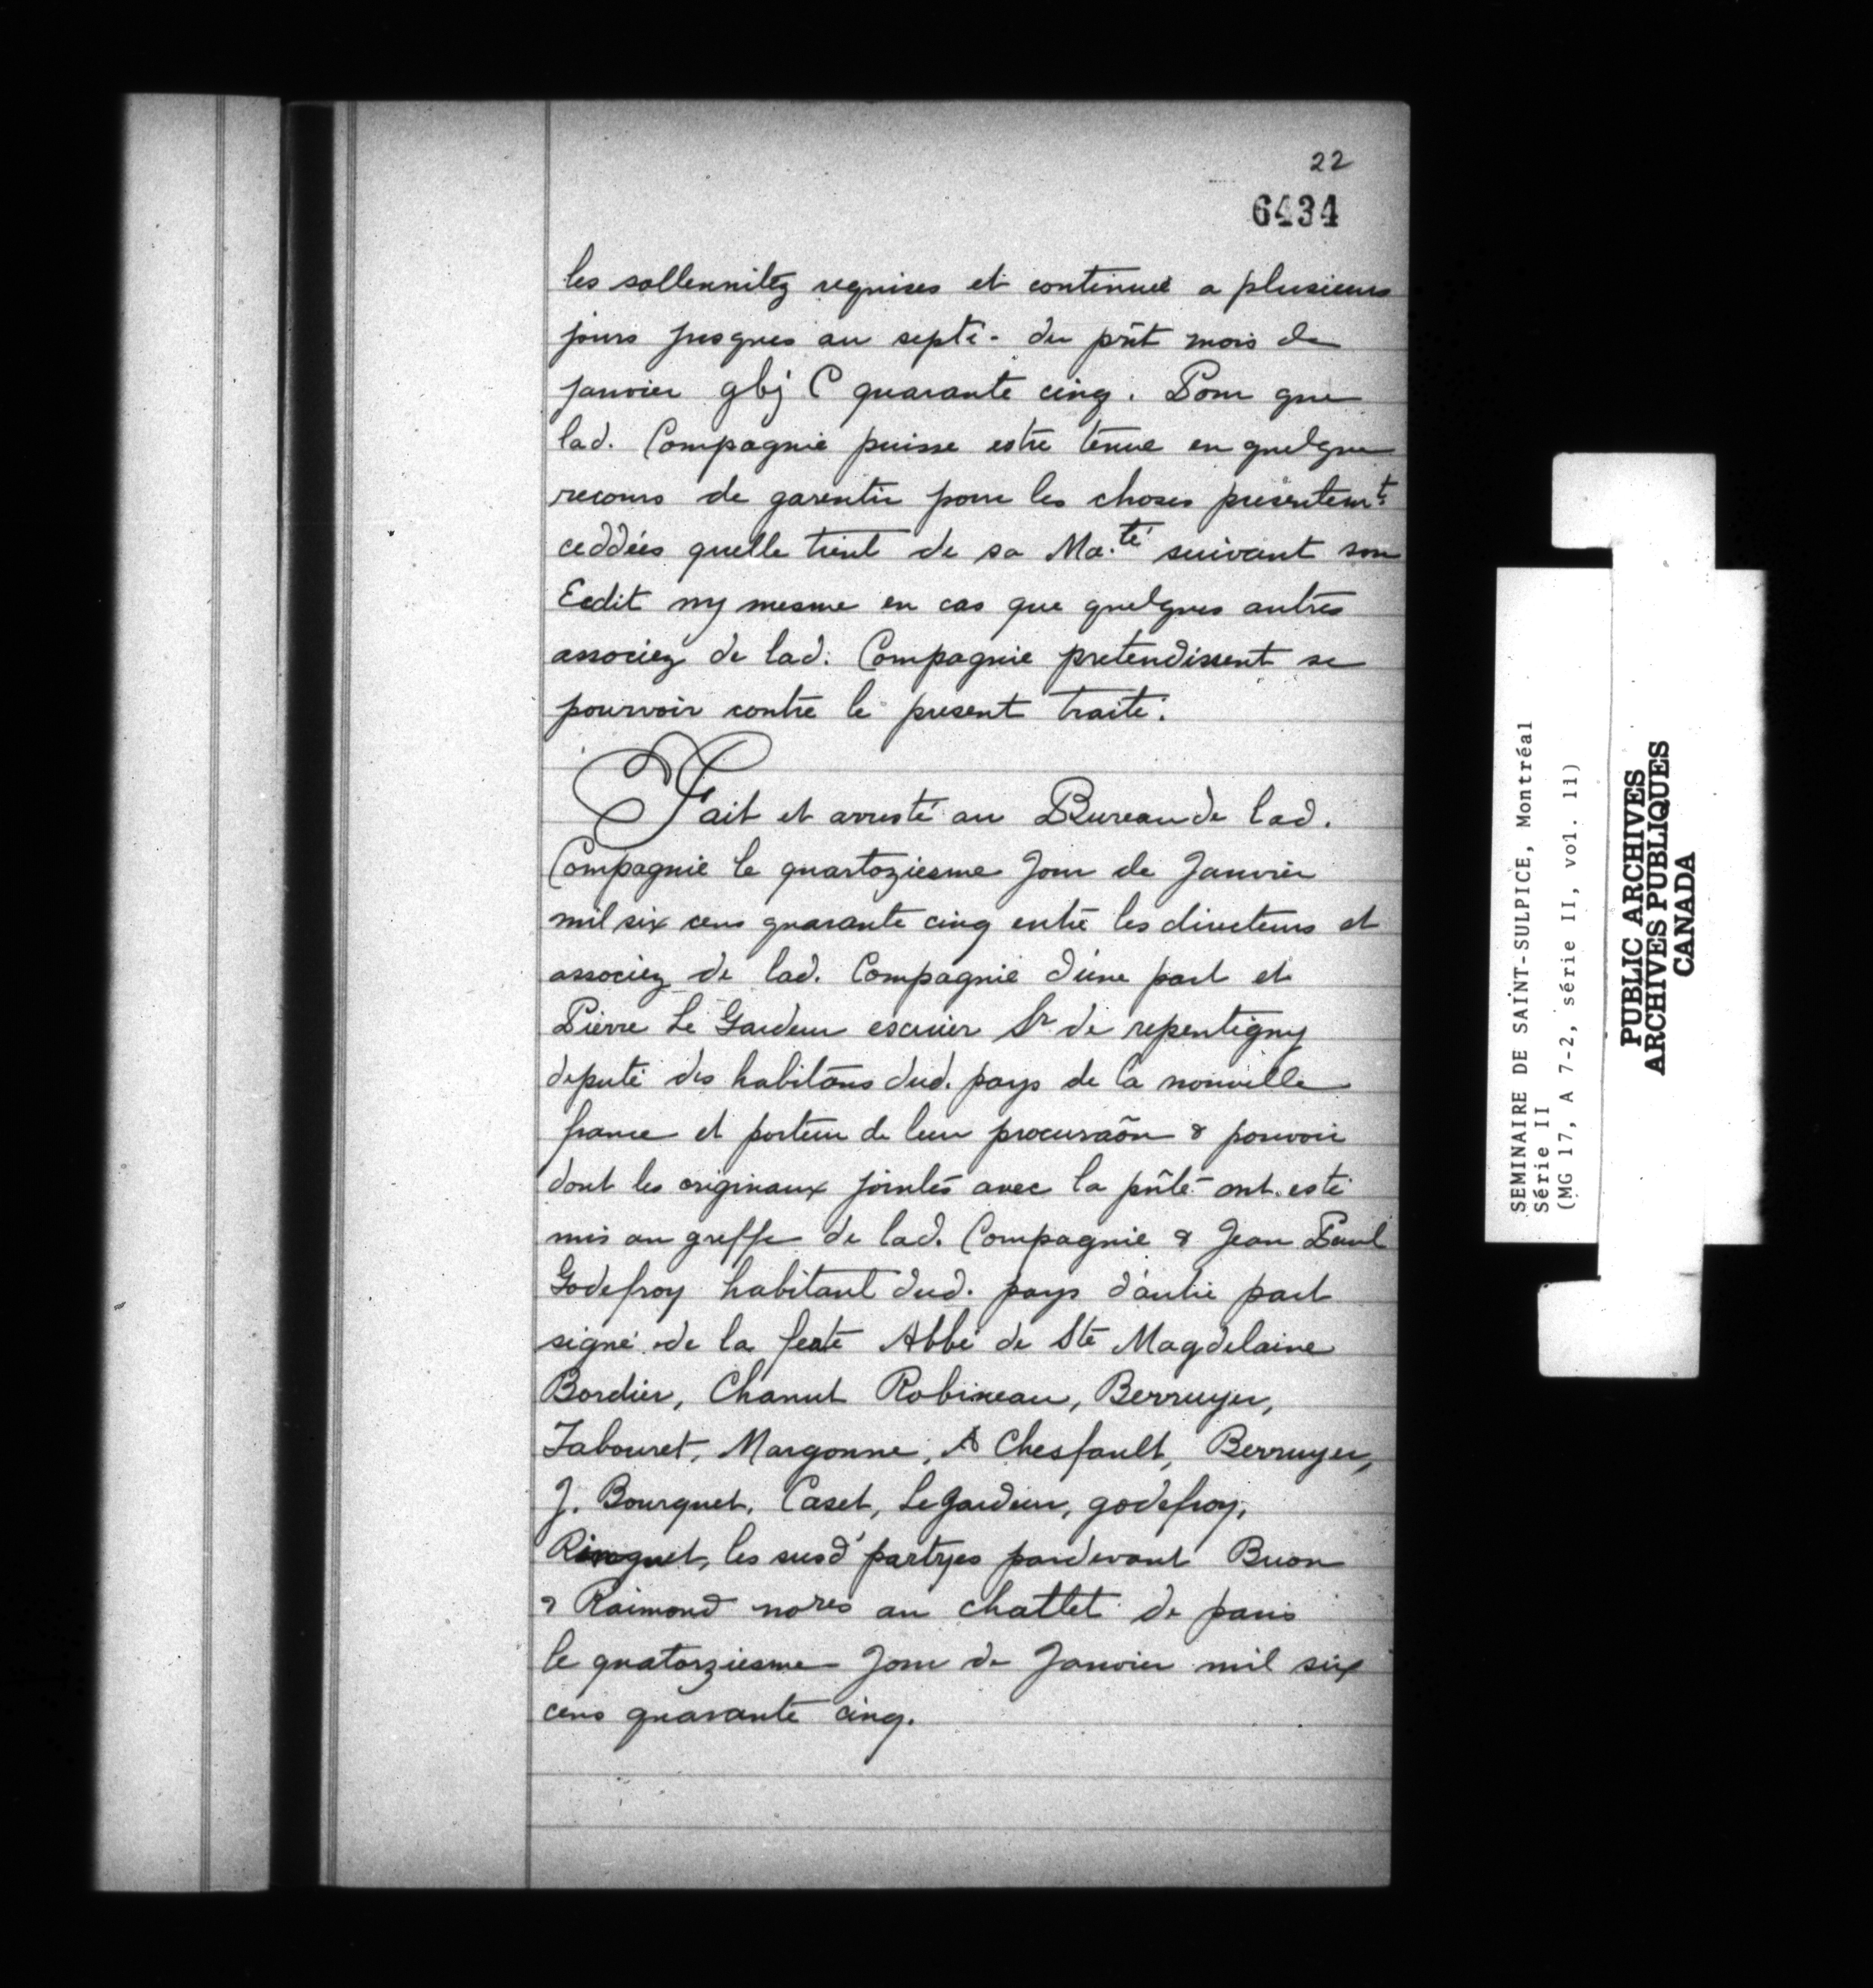 22
6434
les sollennitéz requises et continué a plusieurs
jours jusques au septe- du pñt mois de
janvier gbj C quarante cinq. Pour que
lad. Compagnie puisse estre tenue en quelque
recours de garentir pour les choses presentemt.
ceddées quelle tient de sa Ma.té suivant son
Eedit ny mesme en cas que quelques autres
associez de lad. Compagnie pretendissent se
pourvoir contre le present traité.
Fait et arresté au Bureau de lad.
Compagnie le quartoziesme Jour de Janvier
mil six cens quarante cinq entre les directeurs et
associez de lad. Compagnie d'une part et
Pierre Le Gardeur escuier Sr de repentigny
deputé des habitans dud. pays de la nouvelle
france et porteur de leur procuraõn & pouvoir
dont les originaux jointes avec la pñte ont esté
mis au greffe de lad. Compagnie & Jean Paul
Godefroy habitant dud. pays d'autre part
signé de la ferté Abbé de Ste Magdelaine
Bordier, Chanut Robineau, Berruyer,
Tabouret, Margonne, A Chesfault, Berruyer,
J. Bourguet, Caset, LeGardeur, godefroy,
Rinquet, les susd' partyes pardevant Buon
& Raimond nores au chatlet de paris
le quatorziesme Jour de Janvier mil six
cens quarante cinq.
SEMINAIRE DE SAINT-SULPICE, Montréal
Série II
(MG 17, A 7-2, série II, vol. 11)
PUBLIC ARCHIVES
ARCHIVES PUBLIQUES
CANADA